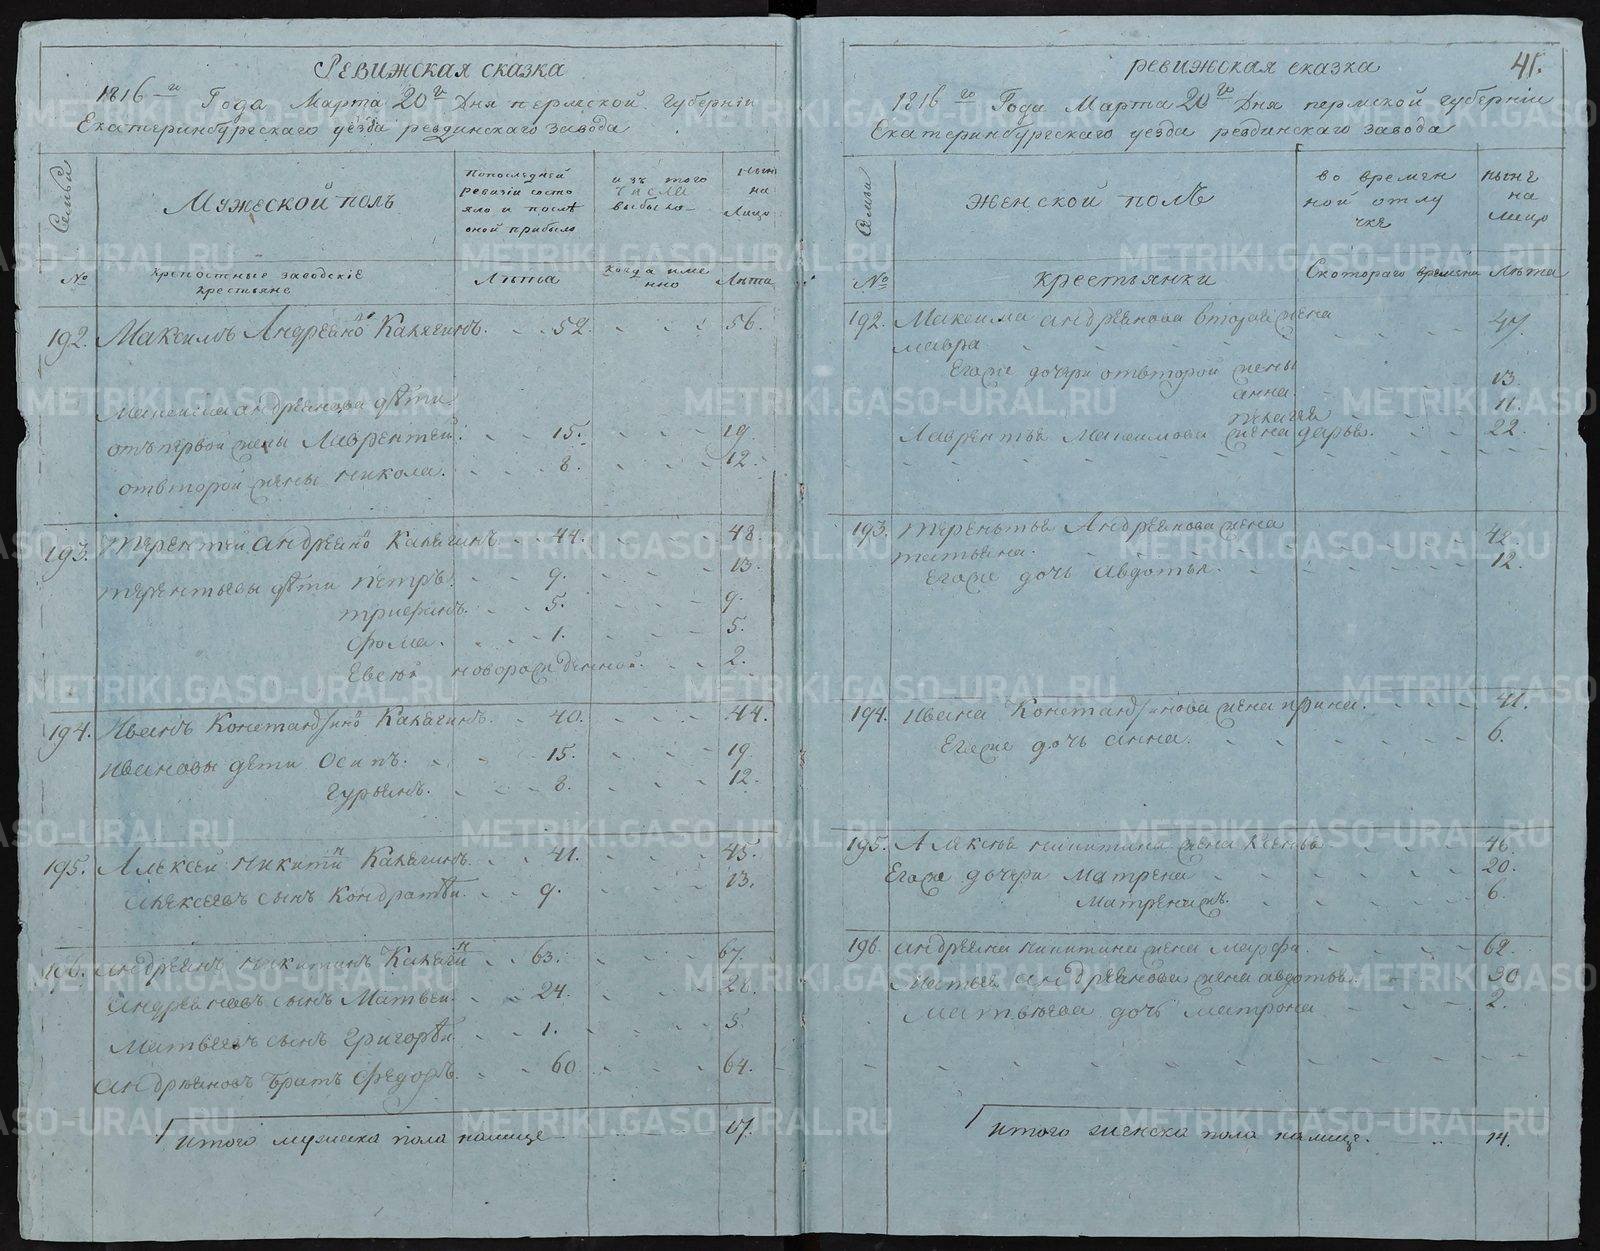 Ревижская сказка
1816 го Года Марта 20 го Дня пермской губернiи
Екатеринбургскаго уезда ревдинскаго завода
Семьи
Мужеской полъ
Попоследней
ревизiи состо
яло и послѣ
оной прибыло
изъ того
числа
выбыло
ныне
на
Лицо
№
крепостные заводскiе
крестьяне
Лѣта
когда име
нно
Лѣта
192. Максимъ Андреяно Калягинъ. 52. 56.
Максима андреянова дѣти
отъ первой жены Лаврентей. 15. 19.
отвторой жены никола. 8. 12.
193. Терентей андреяно Калягинъ 44. 48.
терентьевы дѣти петръ. 9. 13.
трифинъ. 5. 9.
фома. 1. 5.
Евсей новорожденной. 2.
194. Иванъ Констандино Калягинъ. 40. 44.
ивановы дети осипъ. 15. 19.
гурьянъ. 8. 12.
195. Алексей никитин Калягинъ. 41. 45.
алексеевъ сынъ кондратѣй. 9. 13.
196. андреянъ никитинъ Калягин 63. 67.
андреяновъ сынъ Матвей. 24. 28.
Матвеевъ сынъ григорѣй. 1. 5.
андреяновъ братъ федоръ. 60 64.
итого мужеска пола налице 17.
ревижская сказка
41.
1816 го Года Марта 20 го Дня пермской губернiи
Екатеринбургскаго уезда ревдинскаго завода
Семьи
Женской полъ
во времен
ной отлу
чке
ныне
на
лицо
№
крестьянки
Скотораго времени
Лѣта
192. Максима андреянова вторая жена
мавра 47.
Егоже дочери отвторой жены
анна. 13.
пелагея 11.
Лаврентья Максимова жена дарья. 22.
193. терентья Андреянова жена
татьяна. 42.
Егоже дочь авдотья. 12.
194. ивана Констандинова жена ирина. 41.
Егоже дочь анна. 6.
195. Алексея никитина жена ксенья 46.
Егоже дочери матрена 20.
Матрена жъ. 6.
196. андреяна никитина жена марфа 62.
матвея андреянова жена авдотья. 30
матвеева дочь матрона 2.
итого женска пола налице. 14.
METRIKI.GASO-URAL.RU